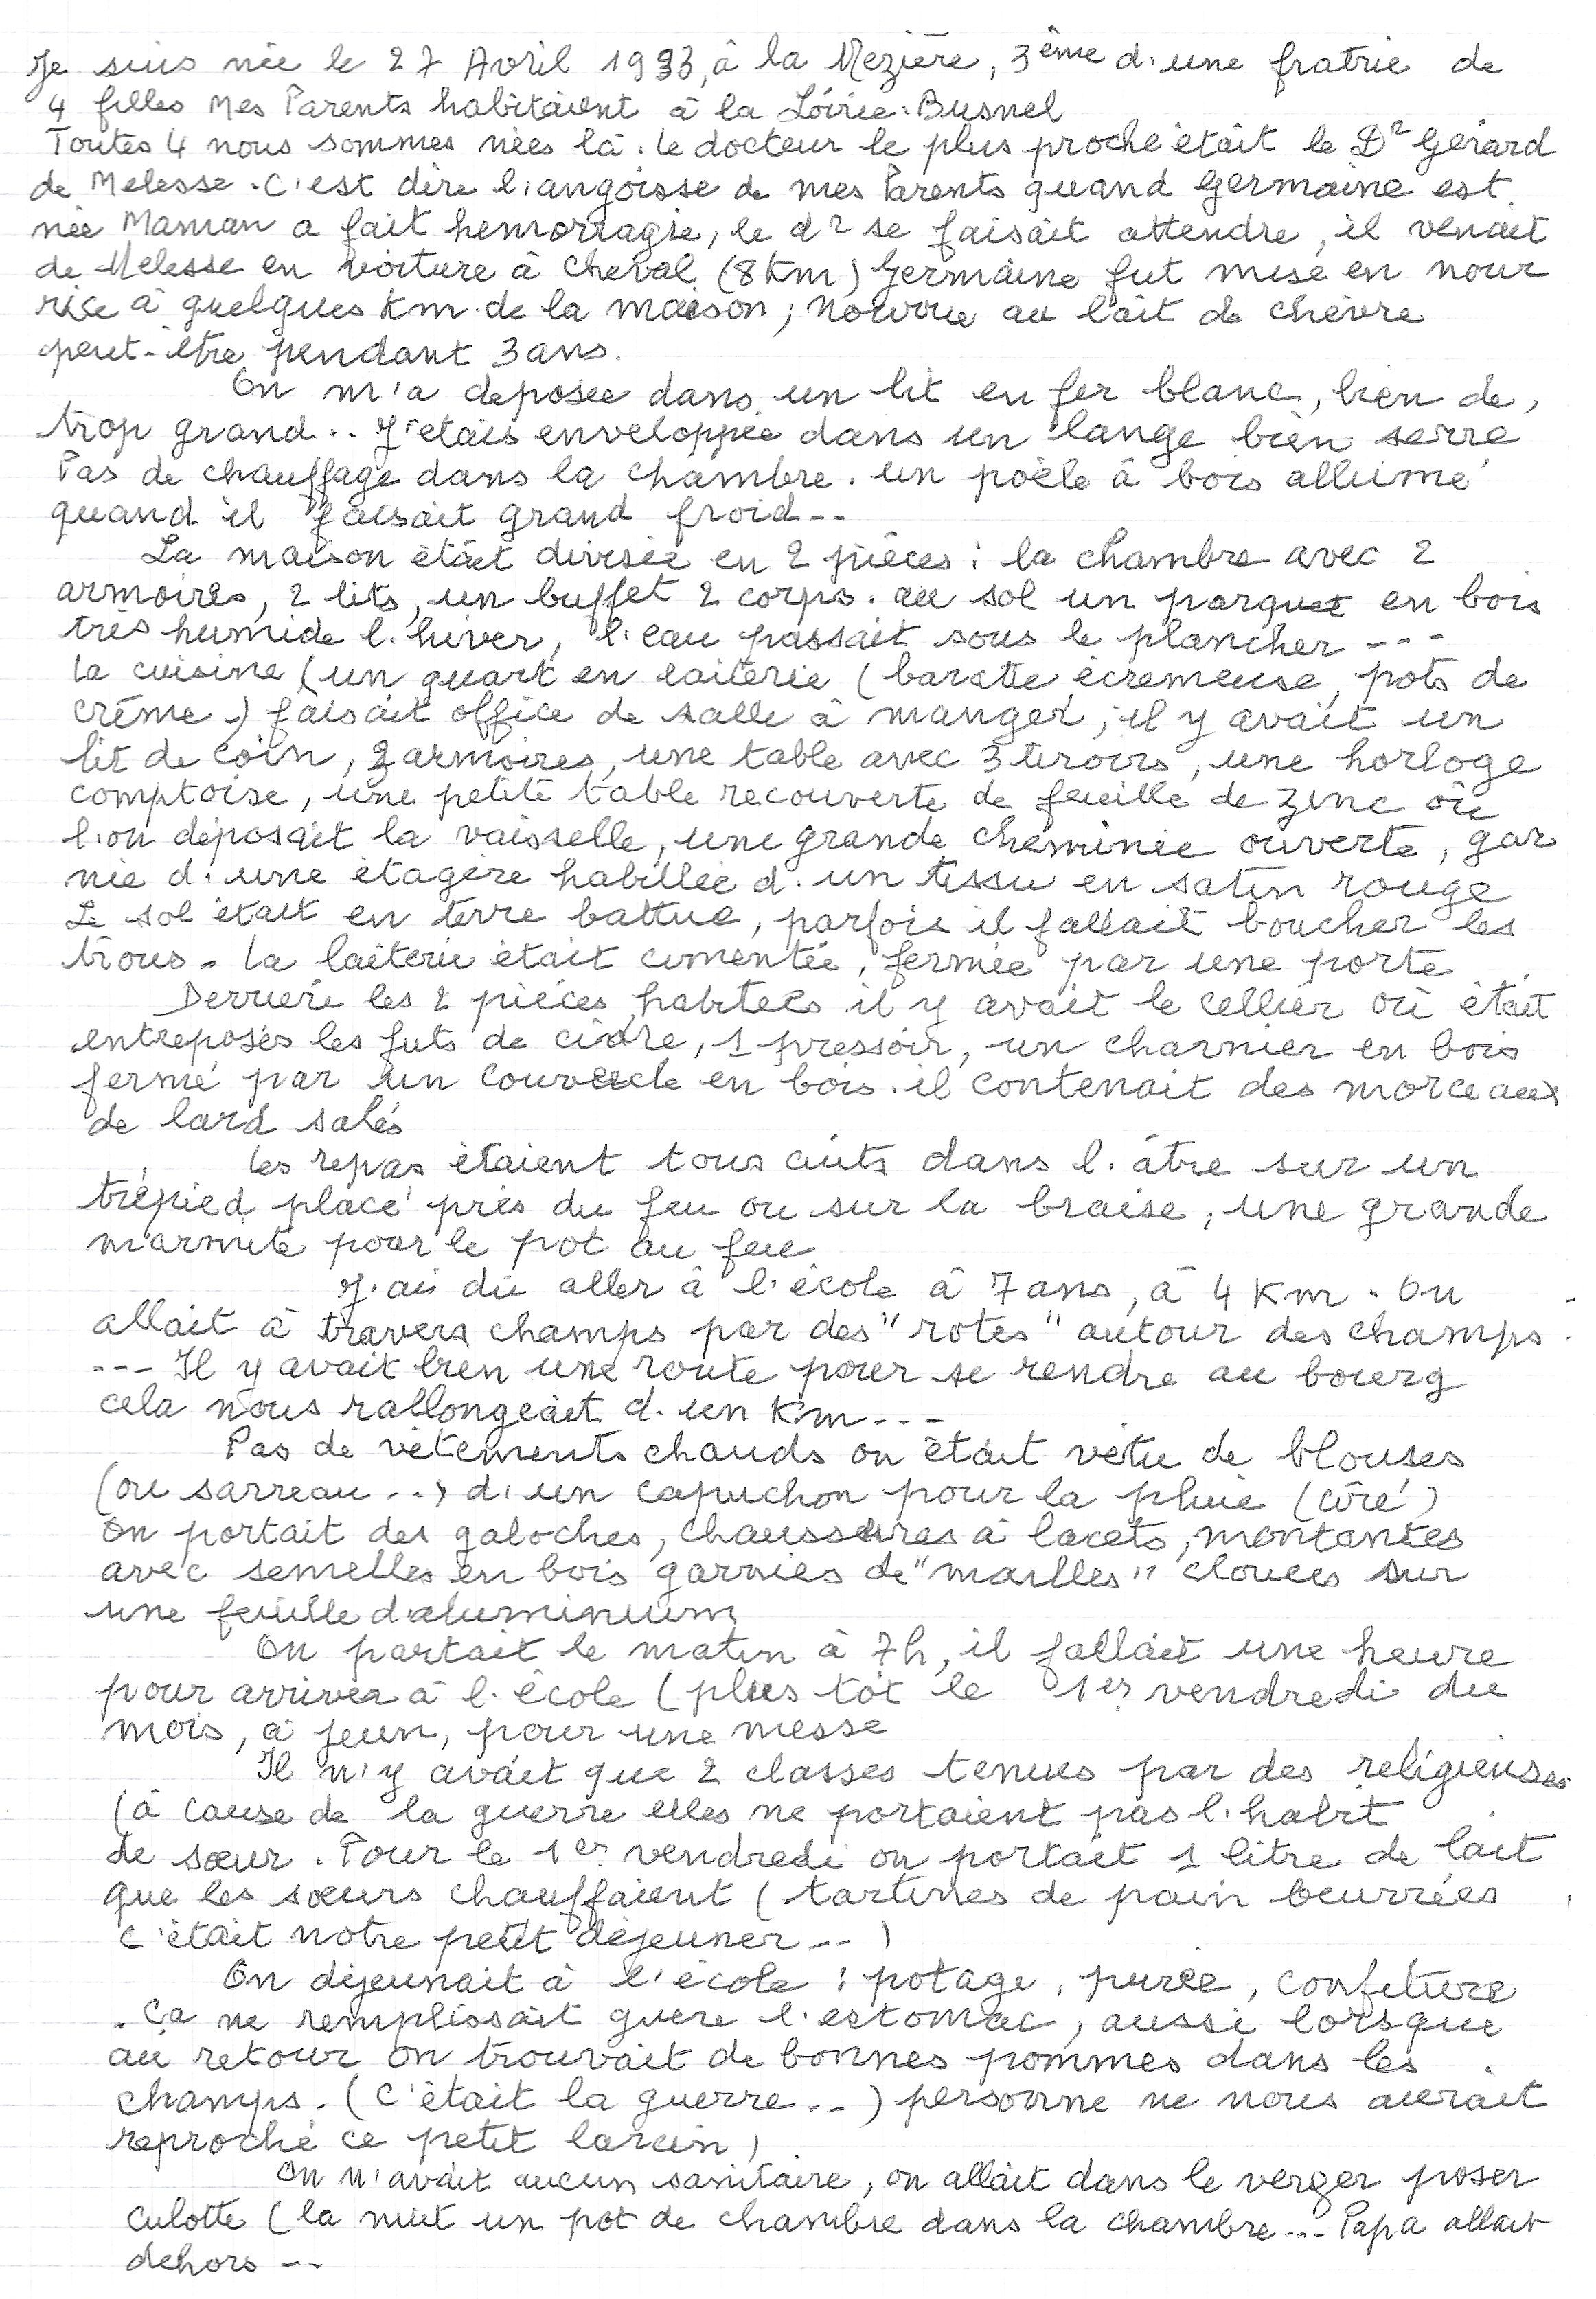 Je suis née le 27 Avril 1933, à la Mezière, 3ème d'une fratrie de
4 filles Mes Parents habitaient à la Loirie-Busnel
Toutes 4 nous sommes nées là. Le docteur le plus proche était le Dr Gérard
de Melesse. C'est dire l'angoisse de mes Parents quand Germaine est
née Maman a fait hemorragie, le dr se faisait attendre, il venait
de Melesse en voiture à cheval (8 km) Germaine fut mise en nour
rice à quelques km. de la maison; nourrie au lait de chèvre
peut-être pendant 3 ans.
On m'a deposée dans un lit en fer blanc, bien de,
trop grand.. J'étais enveloppée dans un lange bien serré
Pas de chauffage dans la chambre. un poêle à bois allumé
quand il faisait grand froid--
La maison était divisée en 2 pièces : la chambre avec 2
armoires, 2 lits, un buffet 2 corps. au sol un parquet en bois
très humide l'hiver, l'eau passait sous le plancher ---
la cuisine (un quart en laiterie (baratte écremeuse, pots de
crème-) faisait office de salle à manger; il y avait un
lit de coin, 2 armoires, une table avec 3 tiroirs, une horloge
comptoise, une petite table recouverte de feuille de zinc où
l'on déposait la vaisselle, une grande cheminée ouverte, gar
nie d'une étagère habillée d'un tissu en satin rouge
Le sol était en terre battue, parfois il fallait boucher les
trous. La laiterie était cimentée, fermée par une porte
Derrière les 2 pièces habitées il y avait le cellier où était
entreposés les futs de cidre, 1 pressoir, un charnier en bois
fermé par un couvercle en bois. il contenait des morceaux
de lard salés
Les repas étaient tous cuits dans l'âtre sur un
trépied placé près du feu ou sur la braise, une grande
marmite pour le pot au feu
J'ai dû aller à l'école à 7 ans, à 4 Km. On
allait à travers champs par des "rotes" autour des champs
--- Il y avait bien une route pour se rendre au bourg
cela nous rallongeait d'un Km---
Pas de vêtements chauds on était vêtu de blouses
(ou sarreau..) d'un capuchon pour la pluie (ciré)
On portait des galoches, chaussures à lacets, montantes
avec semelles en bois garnies de "mailles" clouées sur
une feuille d'aluminium
On partait le matin à 7h, il fallait une heure
pour arriver à l'école (plus tôt le 1er vendredi du
mois, à jeun, pour une messe
Il n'y avait que 2 classes tenues par des religieuses
(à cause de la guerre elles ne portaient pas l'habit
de sœur. Pour le 1er vendredi on portait 1 litre de lait
que les sœurs chauffaient (tartines de pain beurrées
c'était notre petit déjeuner--)
On déjeunait à l'école : potage, purée, confiture
. Ça ne remplissait guère l'estomac, aussi lorsque
au retour on trouvait de bonnes pommes dans les
champs. (C'était la guerre..) personne ne nous aurait
reproché ce petit larcin)
On n'avait aucun sanitaire, on allait dans le verger poser
culotte (la nuit un pot de chambre dans la chambre... Papa allait
dehors --